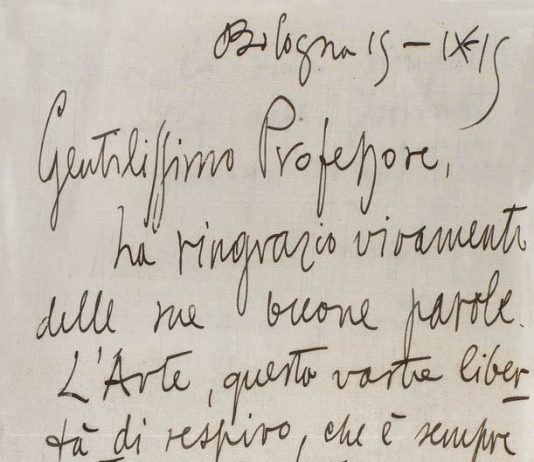 Bologna 15 - IX - 15
Gentilissimo Professore,
La ringrazio vivamente
delle sue buone parole.
L'Arte, questa vasta liber
tà di respiro, che è sempre